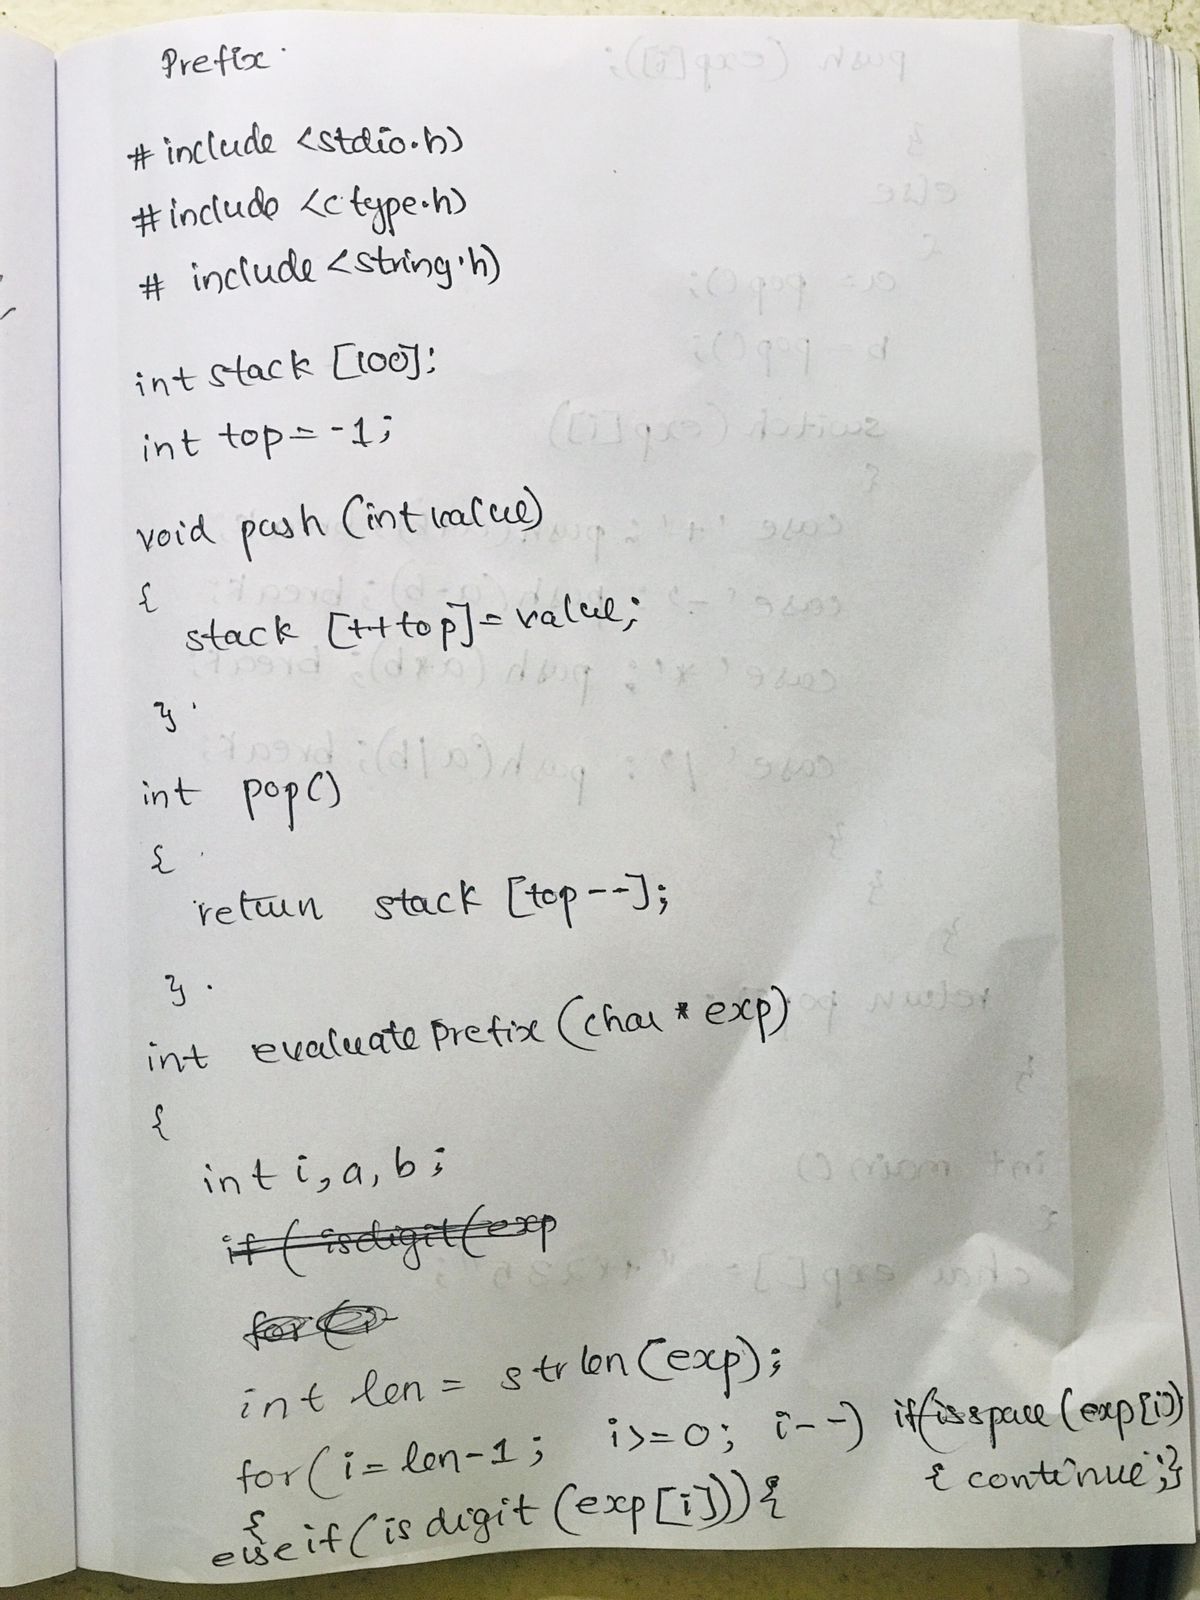 Prefix
# include <stdio.h>
# include <ctype.h>
# include <string.h>
int stack [100];
int top = -1;
void push (int value)
{
stack [++top] = value;
}
int pop()
{
return stack [top--];
}
int evaluate prefix (char * exp)
{
int i, a, b;
if ( isdigit (exp
for (i
int len = strlen (exp);
for (i = len-1; i>=0; i--) if (isspace (exp[i])
{ { continue; }
else if (isdigit (exp[i])) {